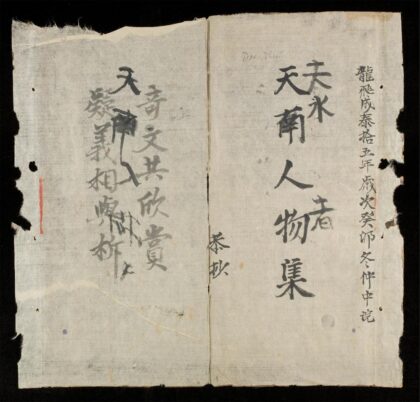 龍飛成泰拾五年歲次癸卯冬仲中浣
天南人物集
恭抄
奇文共欣賞
疑義相與析
天南人